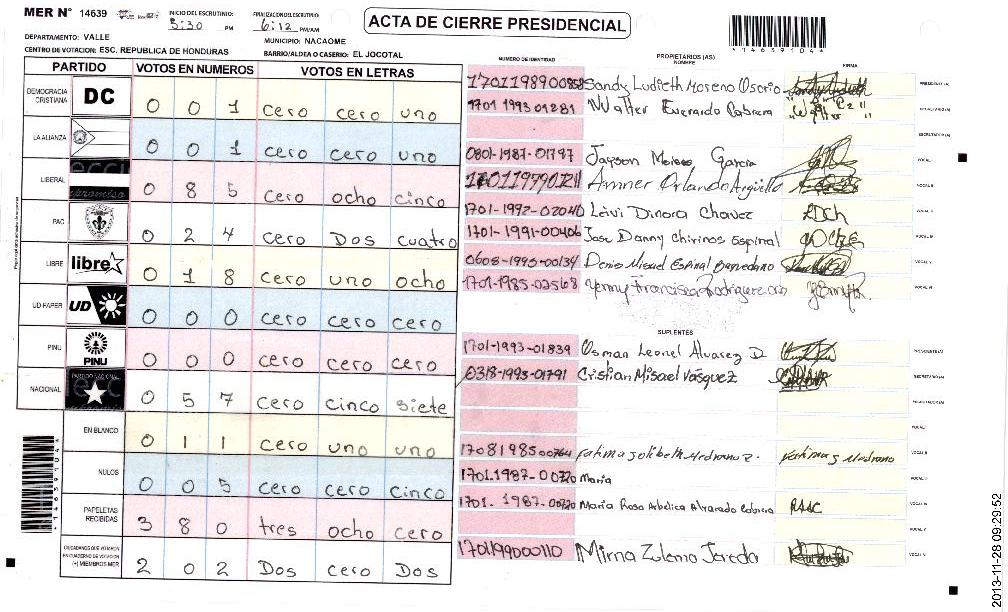 MER N° 14639
INICIO DEL ESCRUTINIO: 5:30 PM
FINALIZACION DEL ESCRUTINIO: 6:12 PM/AM
ACTA DE CIERRE PRESIDENCIAL
*14639104*
DEPARTAMENTO: VALLE
MUNICIPIO: NACAOME
CENTRO DE VOTACION: ESC. REPUBLICA DE HONDURAS
BARRIO/ALDEA O CASERIO: EL JOCOTAL
PARTIDO VOTOS EN NUMEROS VOTOS EN LETRAS
DEMOCRACIA CRISTIANA DC 0 0 1 cero cero uno
LA ALIANZA 0 0 1 cero cero uno
LIBERAL 0 8 5 cero ocho cinco
PAC 0 2 4 cero Dos cuatro
LIBRE libre 0 1 8 cero uno ocho
UD FAPER UD 0 0 0 cero cero cero
PINU PINU 0 0 0 cero cero cero
NACIONAL 0 5 7 cero cinco siete
EN BLANCO 0 1 1 cero uno uno
NULOS 0 0 5 cero cero cinco
PAPELETAS RECIBIDAS 3 8 0 tres ocho cero
CIUDADANOS QUE VOTARON EN CUADERNO DE VOTACION (+) MIEMBROS MER 2 0 2 Dos cero Dos
NUMERO DE IDENTIDAD PROPIETARIOS (AS) NOMBRE FIRMA
Sandy Ludieth Moreno Osorio PRESIDENTE(A)
1701 1993 01281 Walter Everardo Cabrera SECRETARIO(A)
ESCRUTADOR(A)
0801-1987-01797 Jayson Moises Garcia VOCAL I
Amner Orlando Argüello VOCAL II
1701-1992-02040 Livi Dinora Chavez LDCh
1701-1991-00406 Jose Danny Chirinos Espinal
0608-1995-00134 Denis Misael Espinal VOCAL V
1701-1985-02568 Yenny Francisca Rodriguez VOCAL VI
SUPLENTES
1701-1993-01839 Osman Leonel Alvarez D PRESIDENTE(A)
0318-1993-01791 Cristian Misael Vasquez SECRETARIO(A)
ESCRUTADOR(A)
VOCAL I
1708198500764 fatima Medrano VOCAL II
1701-1987-00720 Maria
1701-1987-00720 Maria Rosa Alvarado Cabrera
VOCAL V
1701199000110 Mirna Zulema VOCAL VI
*14639104*
2013-11-28 09:29:52